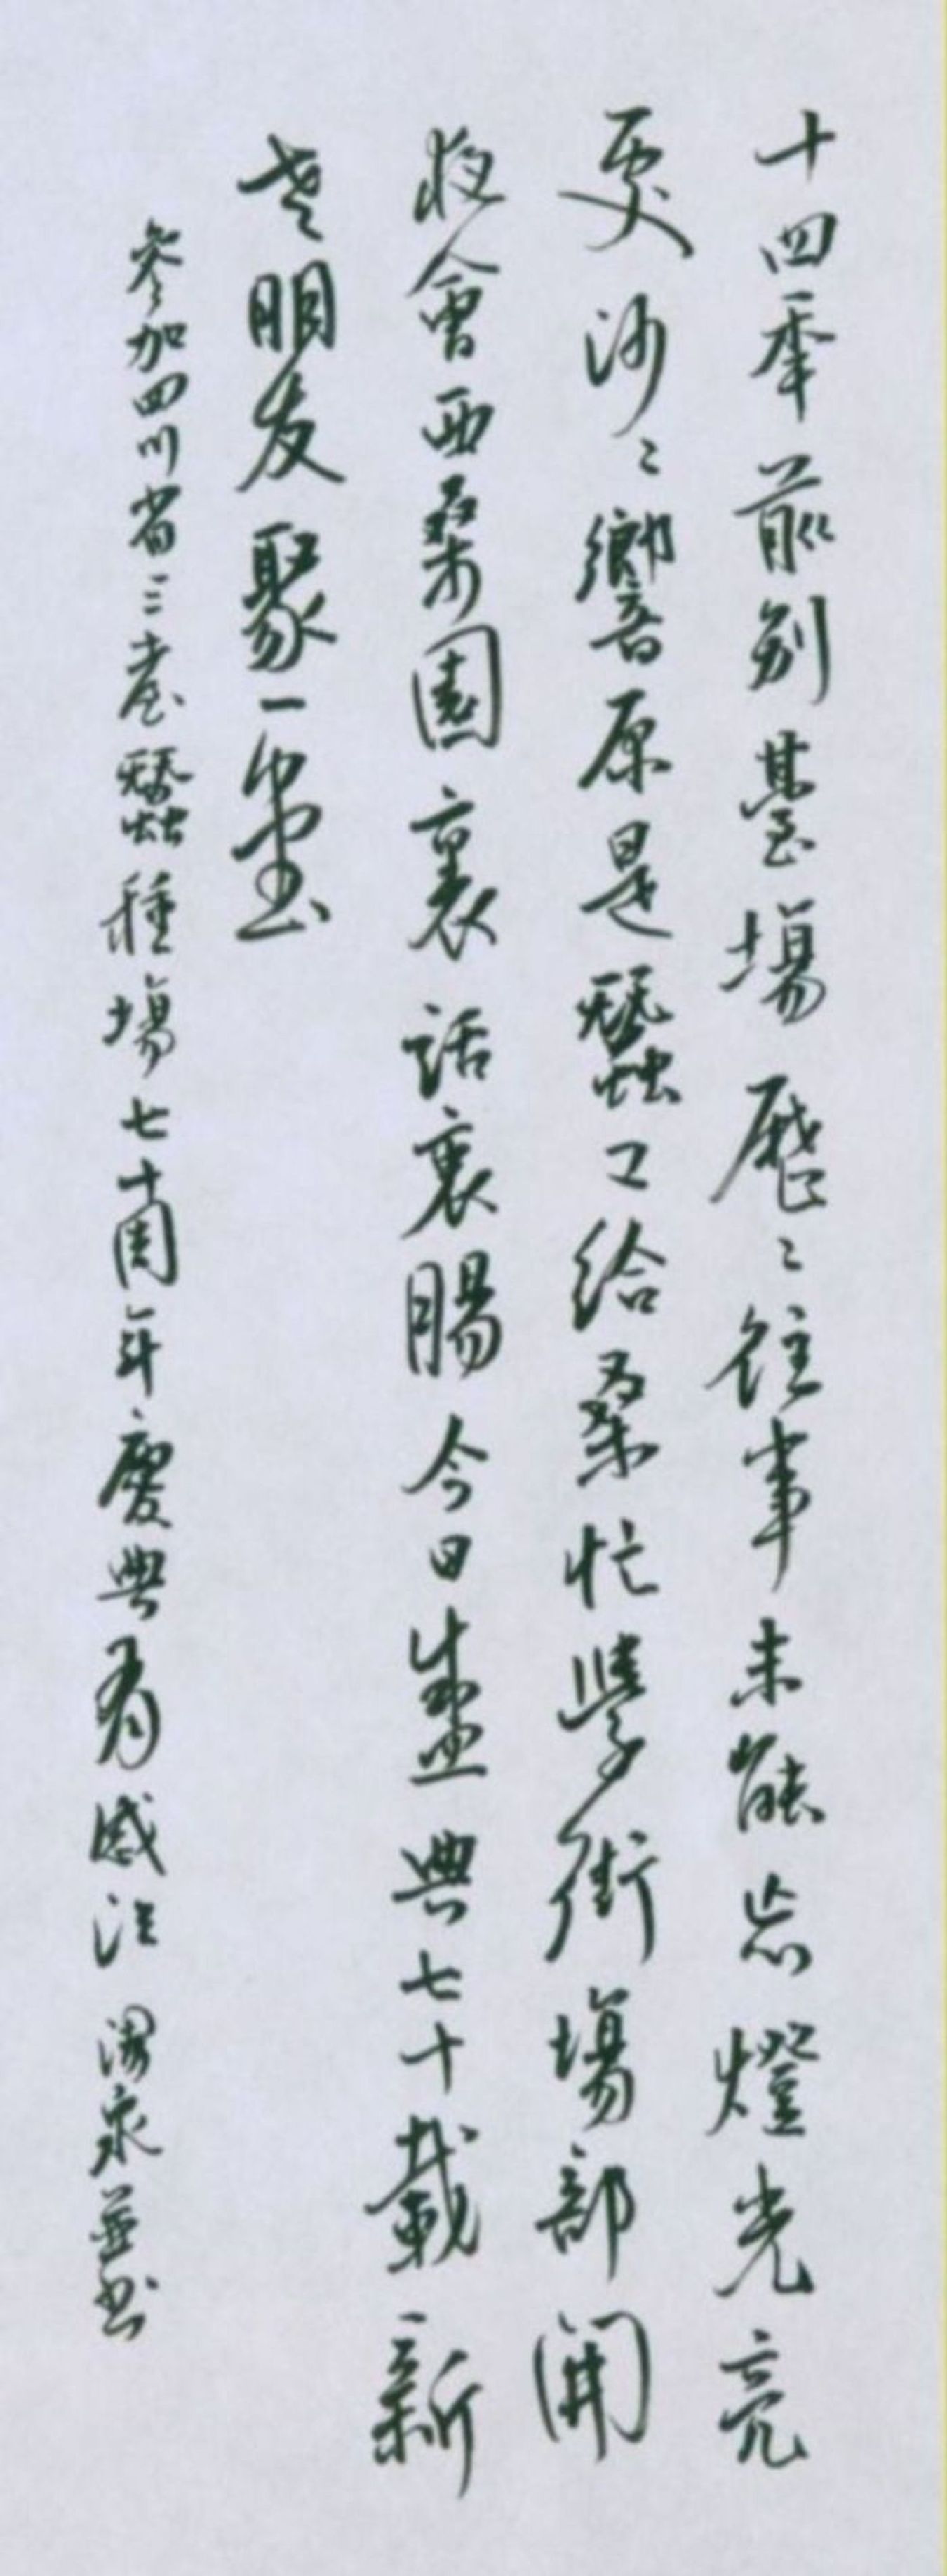 十四年前别臺場歷〻往事未能忘燈光亮
處沙〻響原是蠶工給桑忙學術場部開
夜會西桑園裏話衷腸今日盛典七十載新
老朋友聚一堂
參加四川省三台蠶種場七十周年慶典有感 湯泉並书